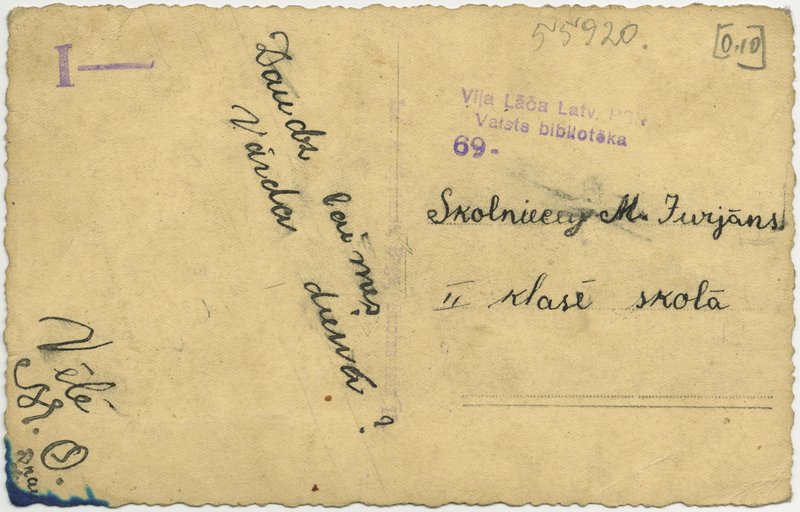 55920.
[0.10]
I—
Viļa Lāča Latv. PSR
Valsts bibliotēka
69-
Daudz laimes
Vārda dienā!
Vēlē
M. O.
Skolniecey M. Jurjāns
II klasē skolā